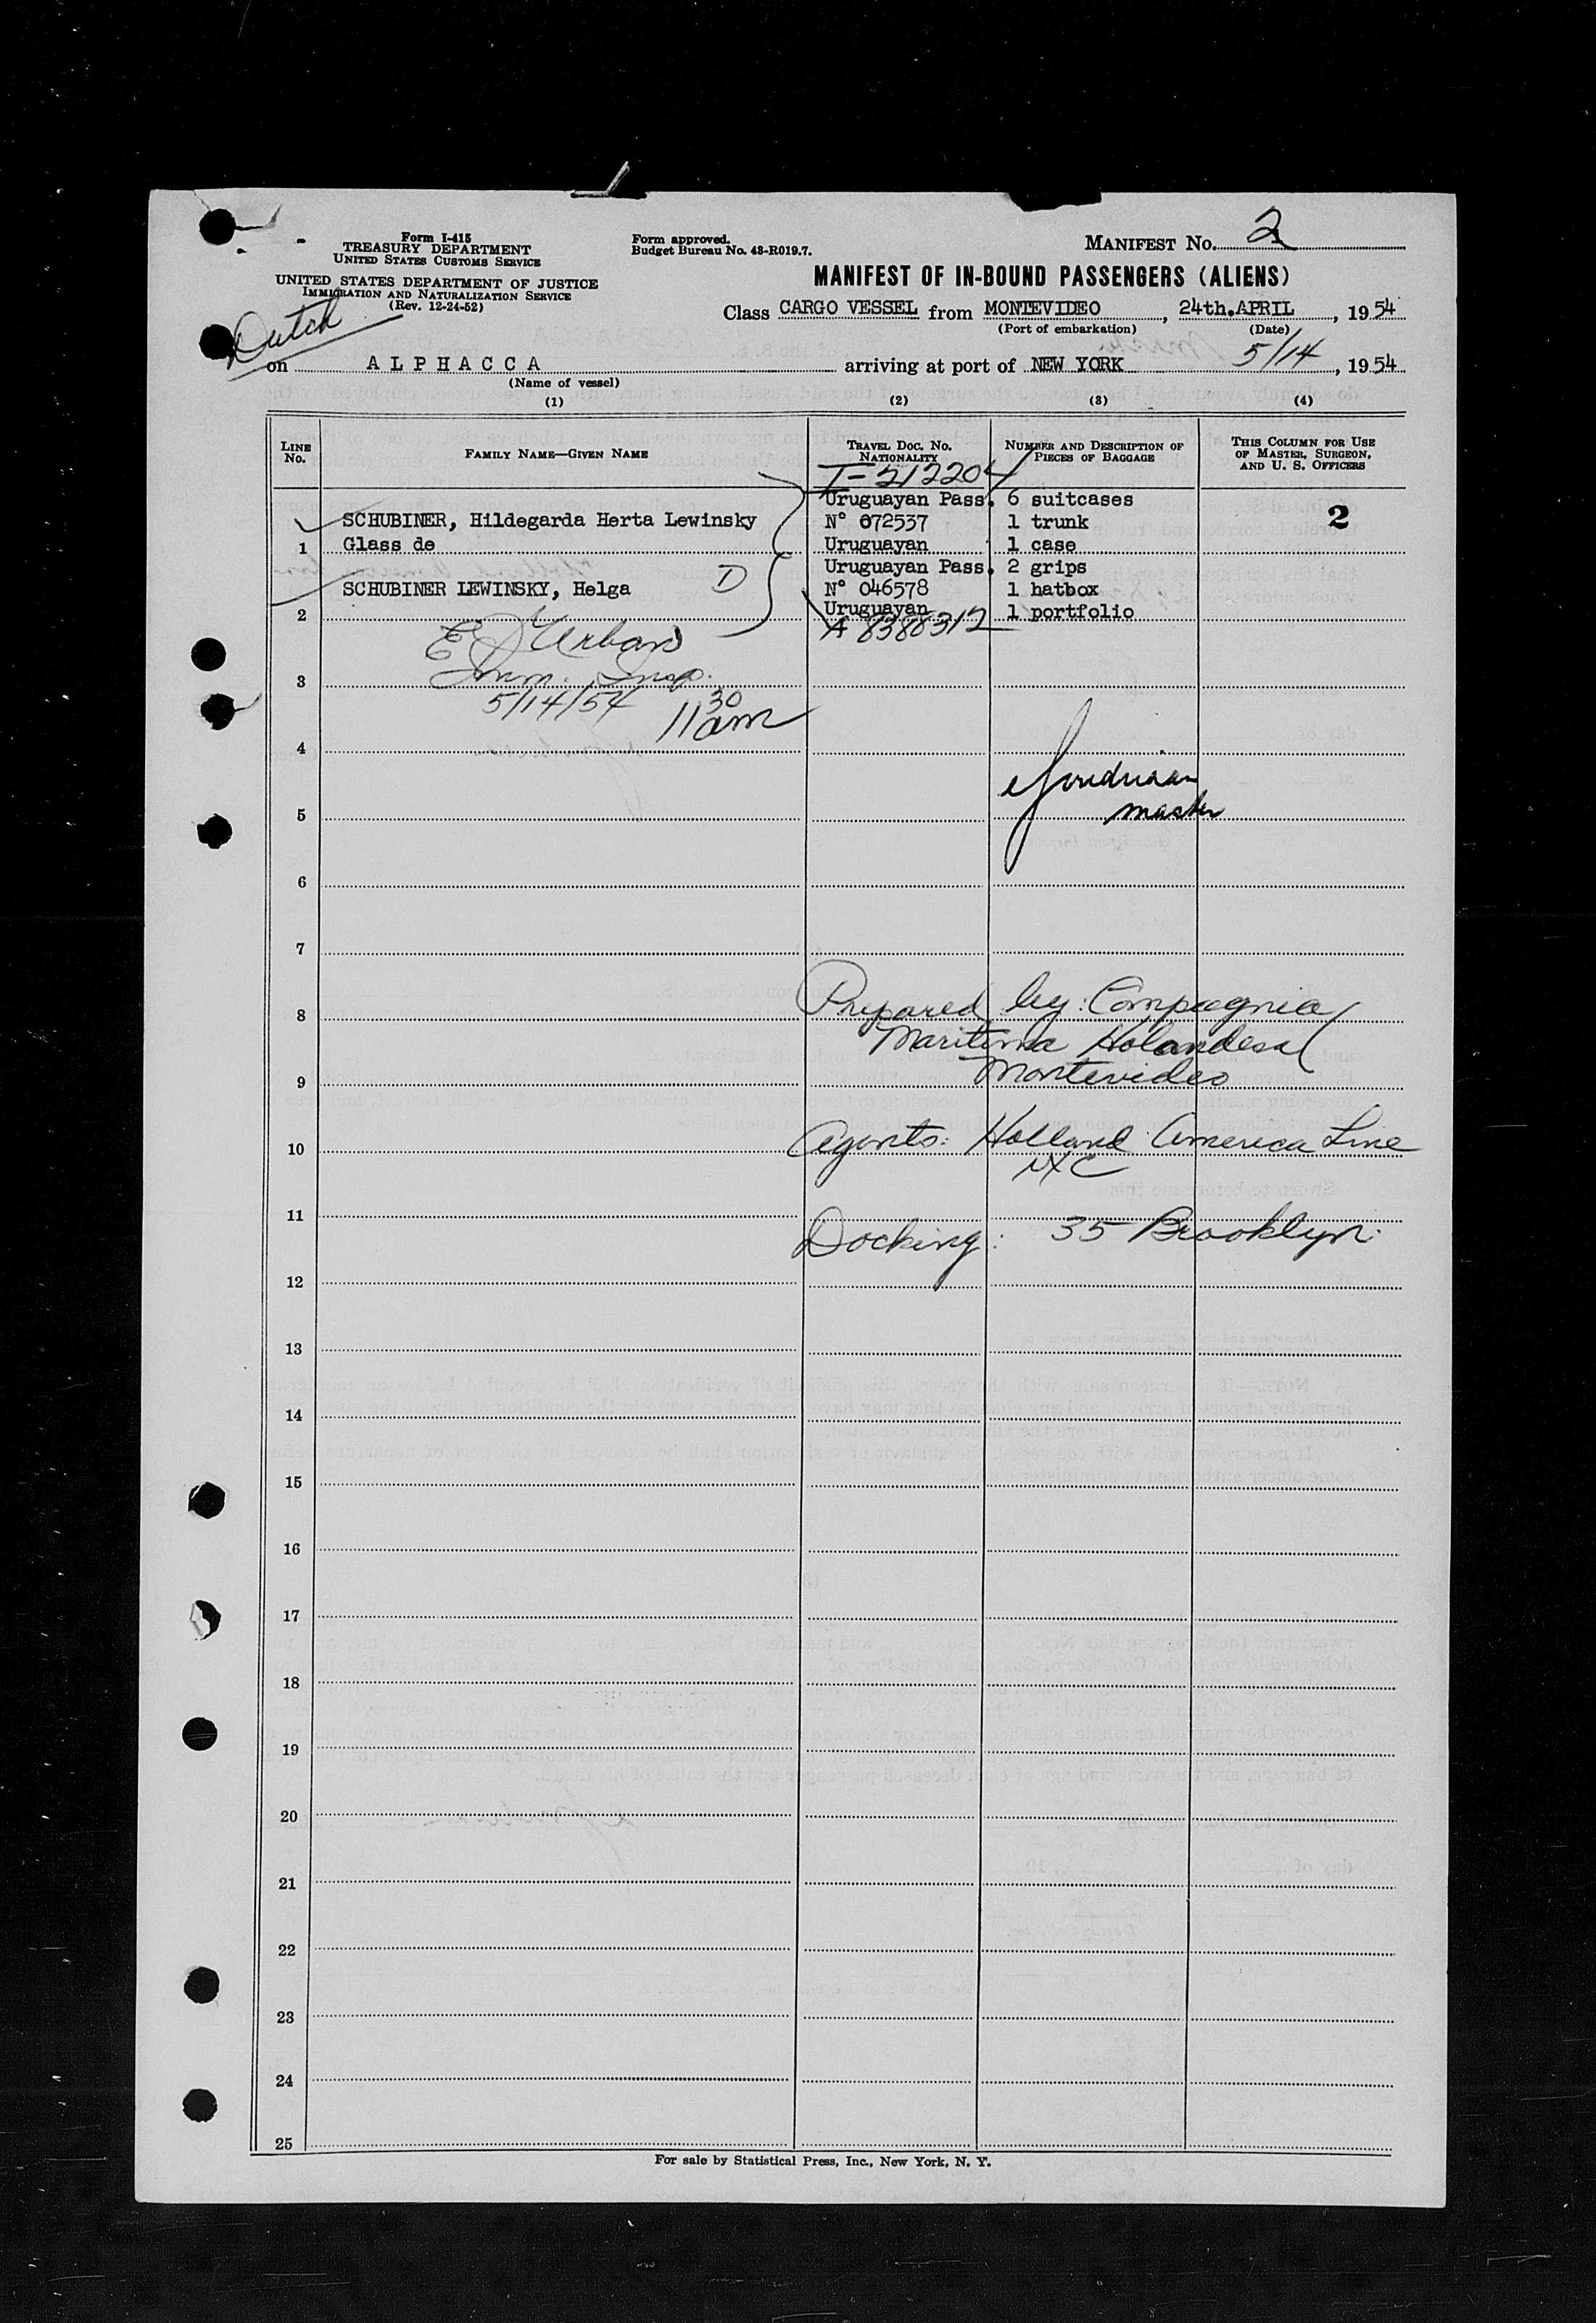 Form I-415
TREASURY DEPARTMENT
UNITED STATES CUSTOMS SERVICE
UNITED STATES DEPARTMENT OF JUSTICE
IMMIGRATION AND NATURALIZATION SERVICE
(Rev. 12-24-52)
Form approved.
Budget Bureau No. 43-R019.7.
MANIFEST No. 2
MANIFEST OF IN-BOUND PASSENGERS (ALIENS)
Class CARGO VESSEL from MONTEVIDEO, 24th.APRIL, 1954
(Port of embarkation) (Date)
Dutch
5/14
on ALPHACCA arriving at port of NEW YORK, 1954
(Name of vessel)
(1) (2) (3) (4)
LINE No.
FAMILY NAME—GIVEN NAME
TRAVEL DOC. NO. NATIONALITY
NUMBER AND DESCRIPTION OF PIECES OF BAGGAGE
THIS COLUMN FOR USE OF MASTER, SURGEON, AND U. S. OFFICERS
I-212204
Uruguayan Pass. 6 suitcases
SCHUBINER, Hildegarda Herta Lewinsky N° 072537 1 trunk 2
1 Glass de Uruguayan 1 case
Uruguayan Pass. 2 grips
SCHUBINER LEWINSKY, Helga D N° 046578 1 hatbox
2 Uruguayan 1 portfolio
A 8388312
E Urban
Imm. Insp.
3
5/14/54 11 30 am
4
master
5
6
7
Prepared by: Compagnia
8
Maritima Holandesa
Montevideo
9
Agents: Holland America Line
10
NYC
11
Docking: 35 Brooklyn
12
13
14
15
16
17
18
19
20
21
22
23
24
25
For sale by Statistical Press, Inc., New York, N. Y.